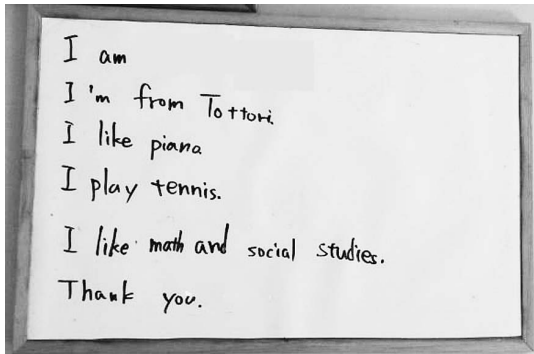 I am
I'm from Tottori.
I like piana
I play tennis.
I like math and social studies.
Thank you.